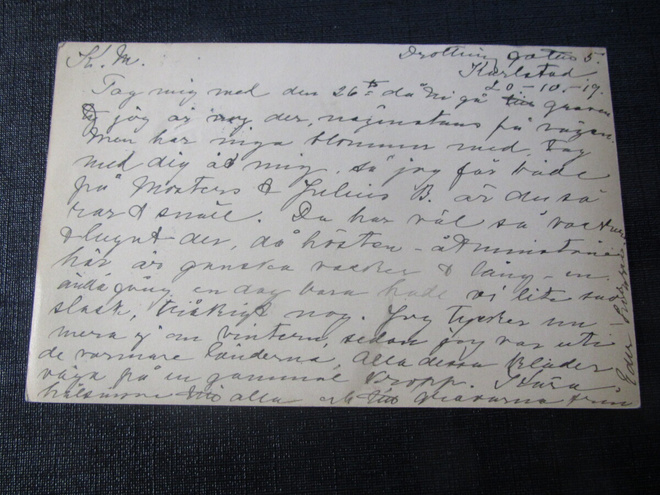 K. M.
Drottninggatan 5.
Karlstad
20-10.-19.
Tag mig med den 26te då Ni gå till graven
jag är der, någonstans på vägen.
Men har inga blommor med, tag
med dig åt mig, så jag får både
på Mosters & Julius B. är du så
rar & snäll. Du har väl så vackert
& lugnt der, då hösten - åtminstone
här, är ganska vacker & lång - en
enda gång en dag bara hade vi lite snö
slask, tråkigt nog. Jag tycker nu
mera ej om vintern, sedan jag var uti
de varmare länderna, alla dessa kläder
väga på en gammal kropp. Kära
hälsningar alla och från
Eder